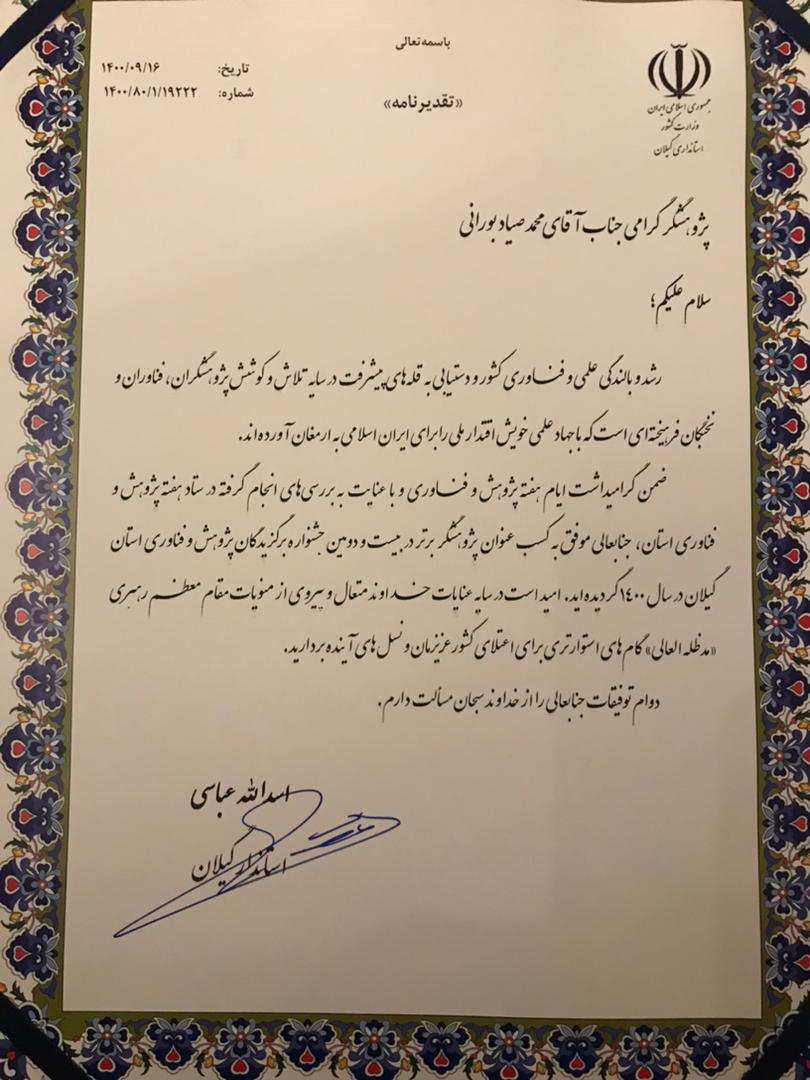 باسمه تعالی
جمهوری اسلامی ایران
وزارت کشور
استانداری گیلان
تاریخ: ۱۴۰۰/۰۹/۱۶
شماره: ۱۴۰۰/۸۰/۱/۱۹۲۲۲
«تقدیرنامه»
پژوهشگر گرامی جناب آقای محمد صیاد بورانی
سلام علیکم؛
رشد و بالندگی علمی و فناوری کشور و دستیابی به قله‌های پیشرفت در سایه تلاش و کوشش پژوهشگران، فناوران و
نخبگان فرهیخته‌ای است که با جهاد علمی خویش اقتدار ملی را برای ایران اسلامی به ارمغان آورده‌اند.
ضمن گرامیداشت ایام هفته پژوهش و فناوری و با عنایت به بررسی‌های انجام گرفته در ستاد هفته پژوهش و
فناوری استان، جنابعالی موفق به کسب عنوان پژوهشگر برتر در بیست و دومین جشنواره برگزیدگان پژوهش و فناوری استان
گیلان در سال ۱۴۰۰ گردیده‌اید. امید است در سایه عنایات خداوند متعال و پیروی از منویات مقام معظم رهبری
«مدظله العالی» گام‌های استوارتری برای اعتلای کشور عزیزمان و نسل‌های آینده بردارید.
دوام توفیقات جنابعالی را از خداوند سبحان مسألت دارم.
اسدالله عباسی
استاندار گیلان